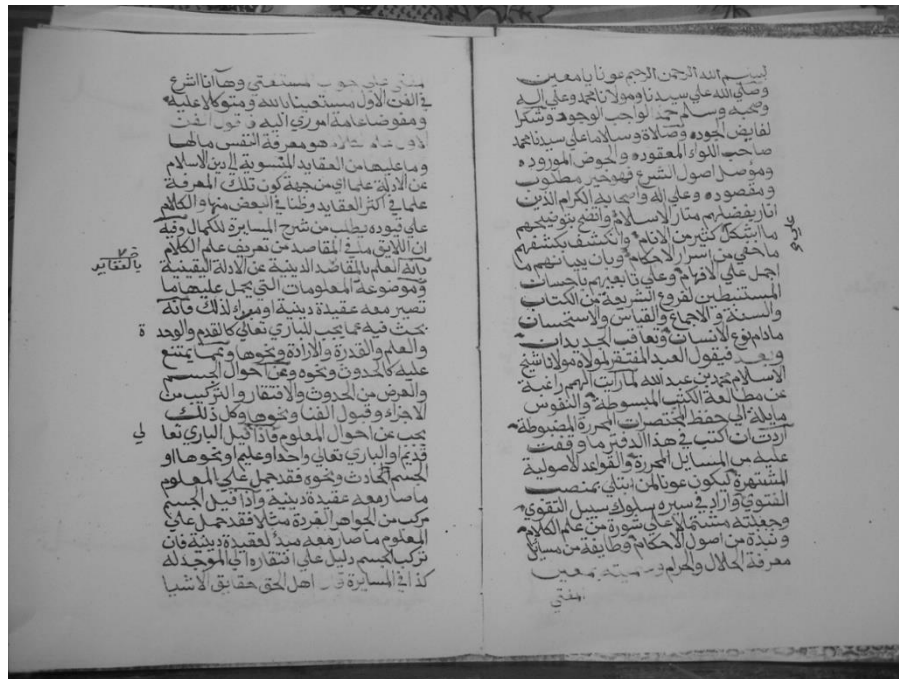 بسم الله الرحمن الرحيم عونا يا معين
وصلي الله علي سيدنا ومولانا محمد وعلي اله
وصحبه وسلم حمد الواجب الوجود وشكرا
لفايض الجوده وصلاة وسلاما علي سيدنا محمد
صاحب اللواء المعقوده والحوض الموروده
وموصل اصول الشرع فهو خير مطلوب
ومقصوده وعلي اله واصحابه الكرام الذين
انار بفضلهم منار الاسلام واتضح بتوضيحهم
ما اشكل كثير من الانام والكشف بكشفهم
ما خفي من اسرار الاحكام وبان ببيانهم ما
اجمل علي الافهام وعلي تابعيهم باحسان
المستنبطين لفروع الشريعة من الكتاب
والسنة والاجماع والقياس والاستحسان
مادام نوع الانسان وتعاقب الجديدان
وبعد فيقول العبد المفتقر لمولاه مولانا شيخ
الاسلام محمد بن عبد الله لما رايت الهمم راغبة
عن مطالعة الكتب المبسوطة والنفوس
مايلة الي حفظ المختصرات المحررة المضبوطة
اردت ان اكتب في هذا الدفتر ما وقفت
عليه من المسايل المحررة والقواعد الاصولية
المشتهرة ليكون عونا لمن ابتلي بمنصب
الفتوي واراد في سيره سلوك سبيل التقوي
وجعلته مشتملا علي شورة من علم الكلام
ونبذة من اصول الاحكام وطايفة من مسايل
معرفة الحلال والحرام وسميته بمعين
المفتي
المفتي علي جوب المستفتي وها انا اشرع
في الفن الاول مستعينا بالله ومتوكلا عليه
ومفوضا عامة اموري اليه فنقول الفن
الاول علم هو معرفة النفس مالها
وما عليها من العقايد المنسوبة الي دين الاسلام
عن الادلة علما اي من جهة كون تلك المعرفة
علما في اكثر العقايد وظنا في البعض منها والكلام
علي قيوده يطلب من شرح المسايرة للكمال وفيه
ان اللايق ما في المقاصد من تعريف علم الكلام
بانه العلم بالمقاصد الدينية عن الادلة اليقينية
بالعقايد
وموضوعة المعلومات التي يحمل عليها ما
تصير معه عقيدة دينية او مبدا لذلك فانه
بحث فيه عما يجب للباري تعالي كالقدم والوحد
ة
والعلم والقدرة والارادة ونحوها وعما يمتنع
عليه كالحدوث ونحوه وعن احوال الجسم
والعرض من الحدوث والافتقار والتركيب من
الاجزاء وقبول الفنا ونحوها وكل ذلك
بحب عن احوال المعلوم فاذا قيل الباري تعا
لي
قديم او الباري تعالي واحد او عليم او نحوها او
الجسم الحادث ونحوه فقد حمل علي المعلوم
ما صار معه عقيدة دينية واذا قيل الجسم
مركب من الجواهر الفردة مثلا فقد حمل علي
المعلوم ما صار معه مبدا لعقيدة دينية فان
تركب الجسم دليل علي افتقاره الي الموجد له
كذا في المسايرة اهل الحق حقايق الاشيا